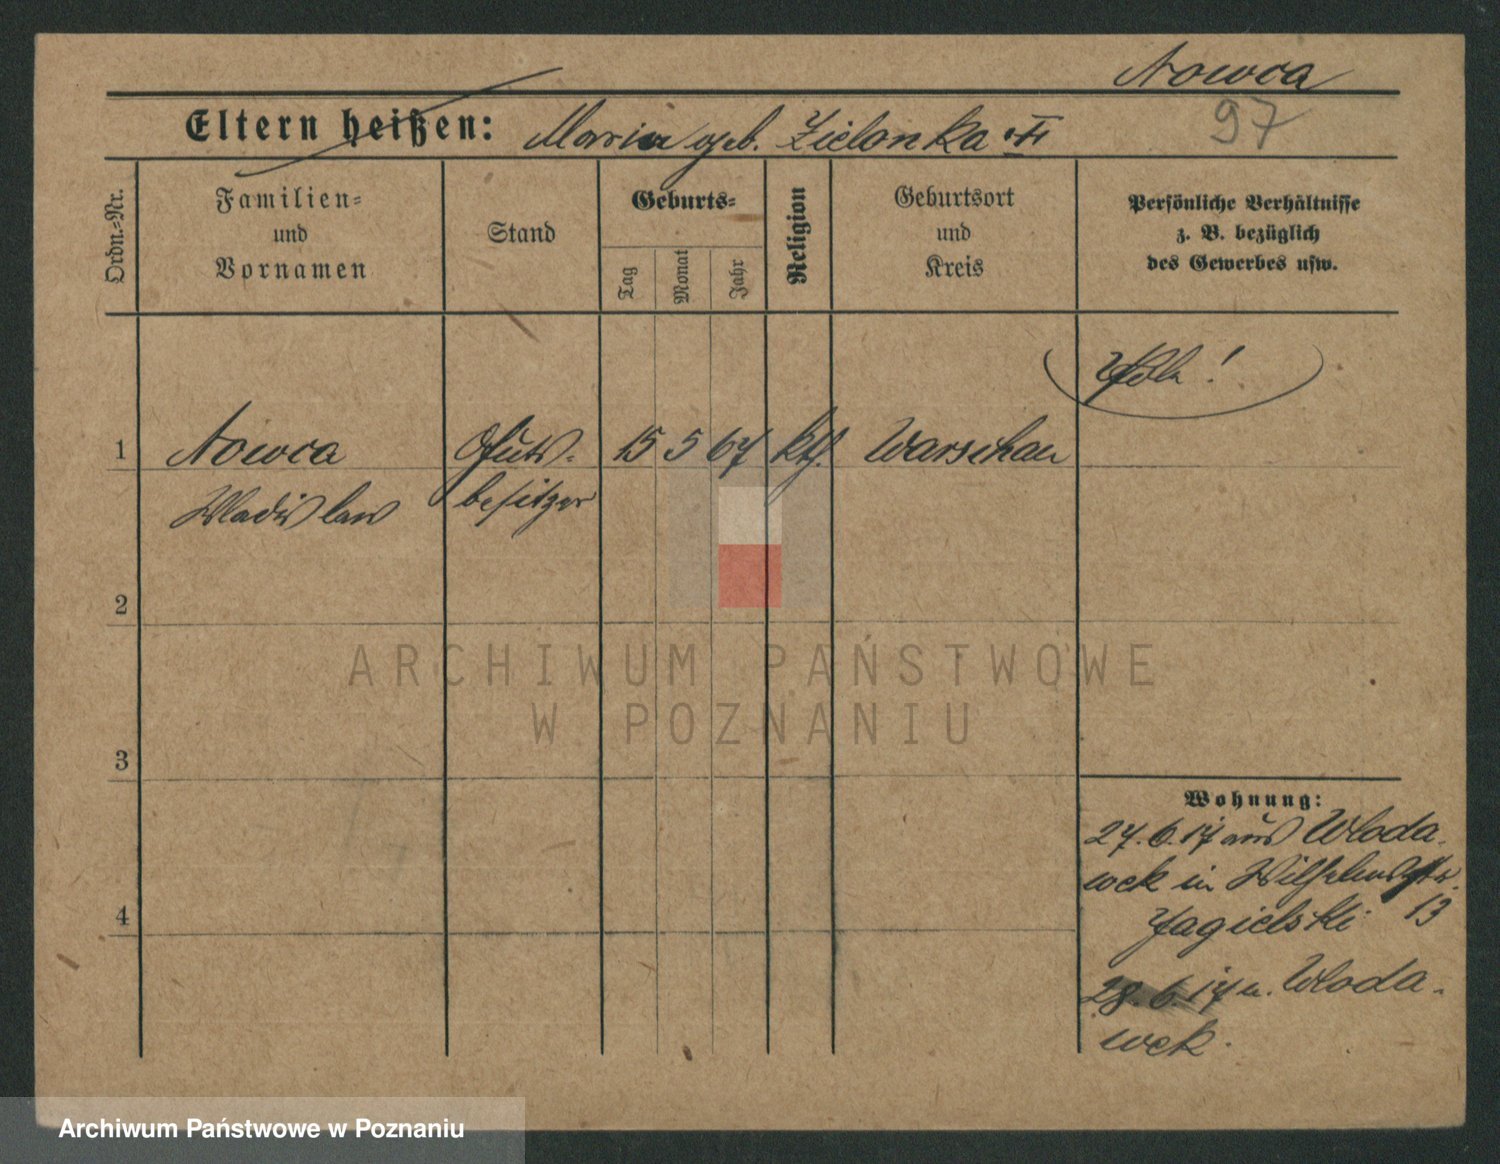 Nowca
Eltern heißen: Maria geb. Zielonka
97
Ordn.-Nr.
Familien-
und
Vornamen
Stand
Geburts-
Tag
Monat
Jahr
Religion
Geburtsort
und
Kreis
Persönliche Verhältnisse
z. B. bezüglich
des Gewerbes usw.
1 Nowca Guts- 15 5 67 kth. Warschau
Wladislaw besitzer
2
3
4
ARCHIWUM PAŃSTWOWE
W POZNANIU
Wohnung:
27.6.17 aus Wloda-
wek in Wilhelmstr.
Jagielski 13
28.6.17 n. Wloda-
wek.
Archiwum Państwowe w Poznaniu